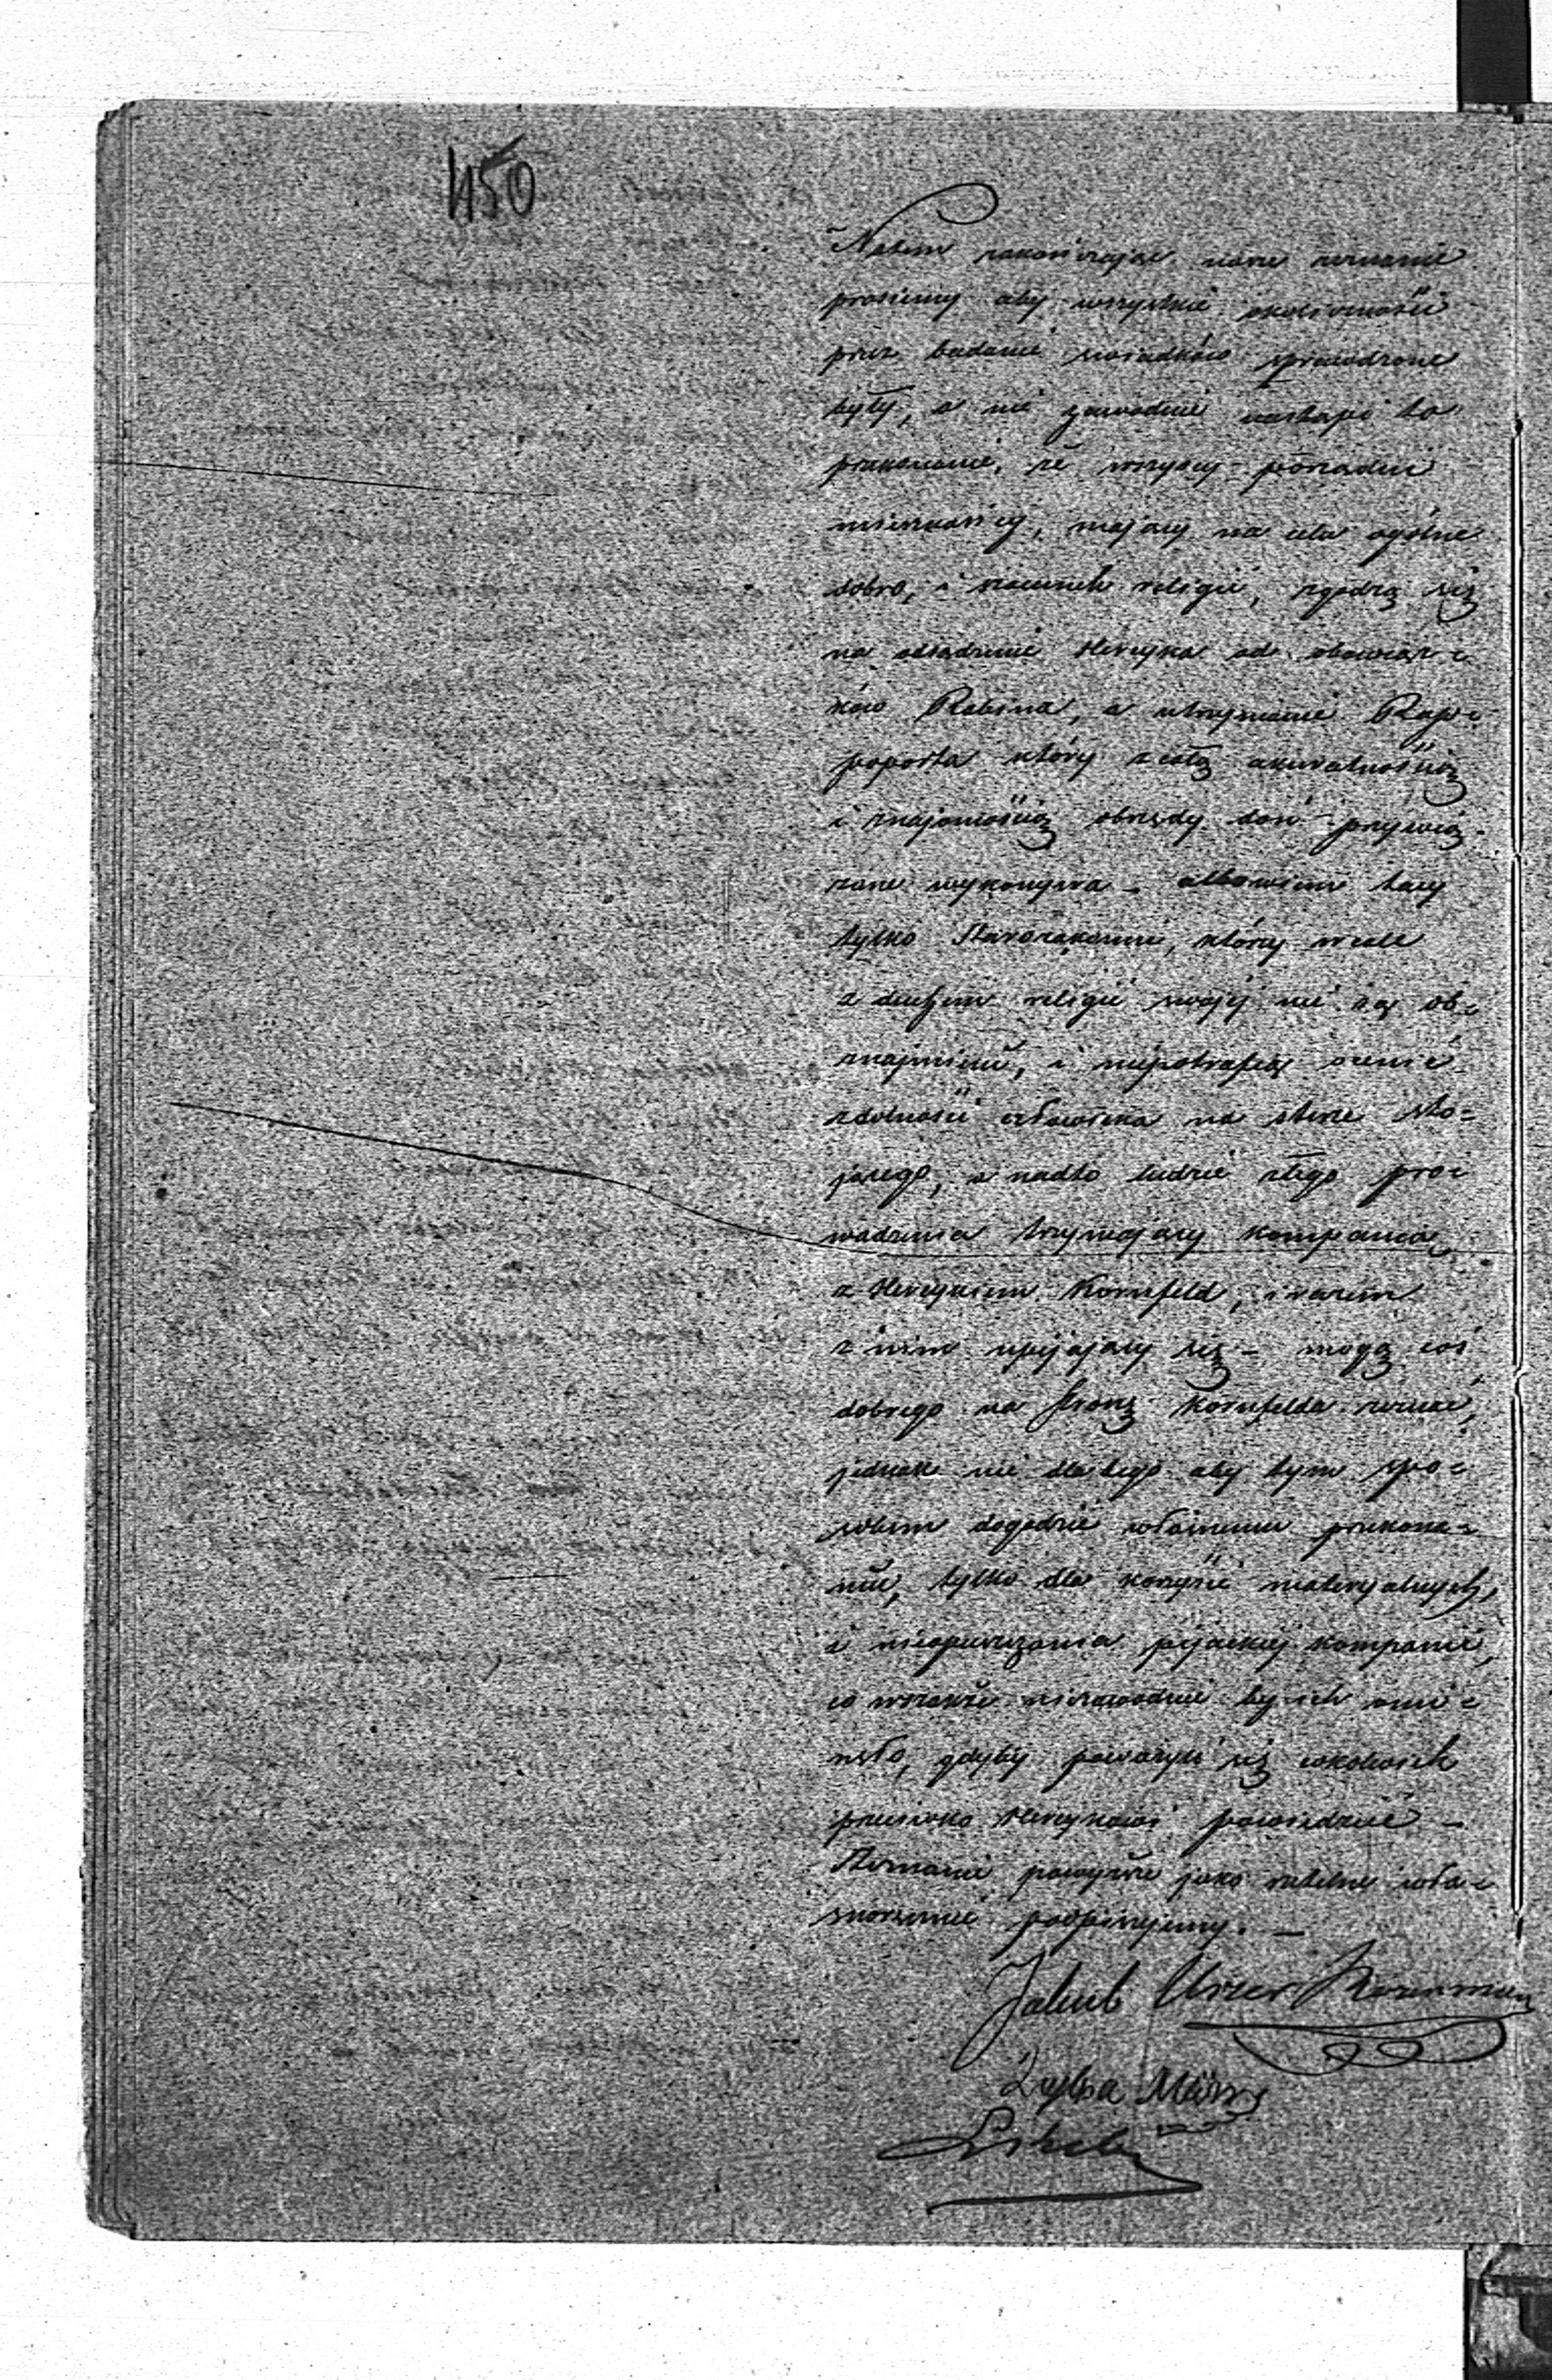 450
Natem zakończając nasze zeznanie
prosiemy aby wszystkie okoliczności
przez badanie swiadków sprawdzone
były, a nie zawodnie nastąpi to
przekonanie, że wszyscy porządni
mieszkańcy, mający na celu ogólne
dobro, i szacunek religii, zgodzą się
na odsądzenie Herczyka od obowiąz=
ków Rabina, a utrzymanie Rapo=
poporta który z całą akuratnością
i znajomością obrzędy doń przywią=
zane wykonywa – albowiem tacy
tylko Starozakonni, którzy wcale
z duchem religii swojéj nie są ob=
znajmieni, i niepotrafią ocenić
zdolność człowieka na sterze sto=
jącego, a nadto ludzie złego pro=
wadzenia trzymający kompanią
z Herczykiem Kornfeld, i razem
z nim upijający się – mogą coś
dobrego na stronę Kornfelda zeznać,
jednak nie dla tego aby tym spo=
sobem dogodzić własnemu przekona=
niu, tylko dla korzyści materyalnych,
i nieopuszczania pijackiéj kompanii,
co wszakże niezawodnie by ich omi=
nęło, gdyby poważyli się cokolwiek
przeciwko Herczykowi powiedzieć –
Zeznanie powyższe jako rzetelne wła=
snoręcznie podpisujemy. –
Jakub
Zelba